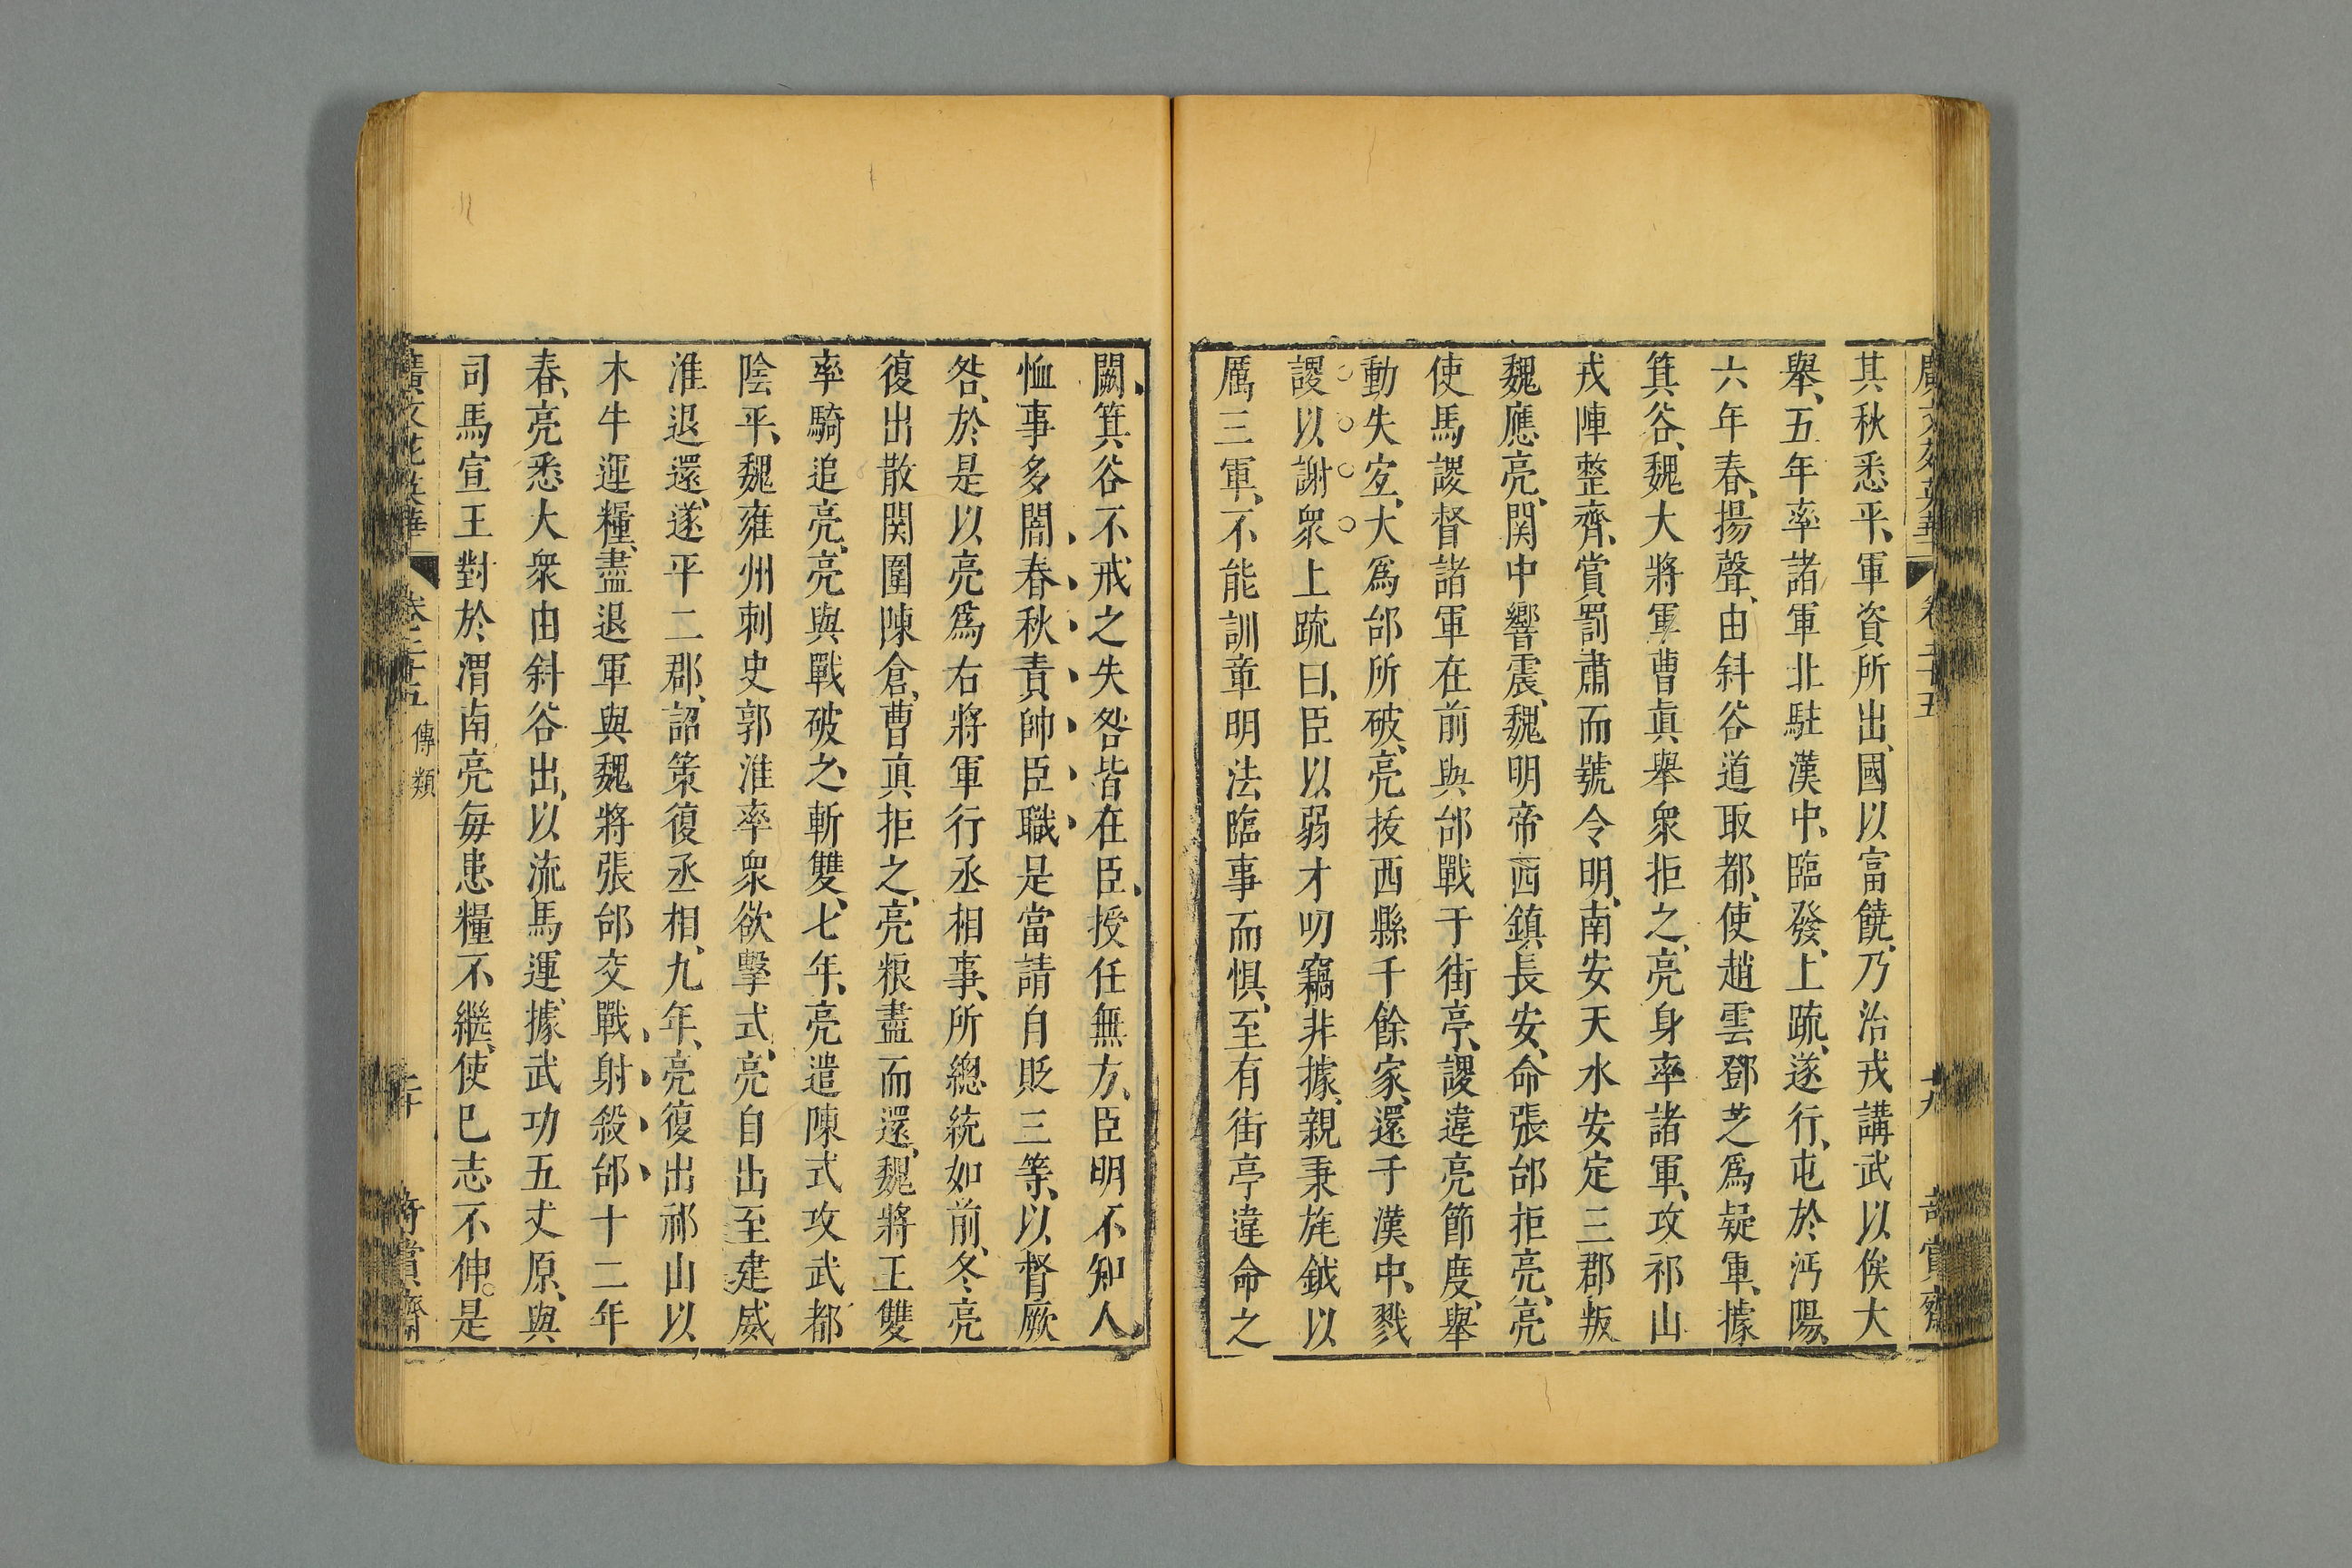 其秋悉平、軍資所出、國以富饒、乃治戎講武以俟大
舉、五年率諸軍北駐漢中、臨發、上疏、遂行、屯於沔陽、
六年春、揚聲、由斜谷道取郿、使趙雲鄧芝爲疑軍、據
箕谷、魏大將軍曹眞舉衆拒之、亮身率諸軍、攻祁山
戎陣整齊、賞罰肅而號令明、南安天水安定三郡叛
魏應亮、関中響震、魏明帝西鎮長安、命張郃拒亮、亮
使馬謖督諸軍在前與郃戰于街亭、謖違亮節度、舉
動失宜、大爲郃所破、亮拔西縣千餘家、還于漢中、戮
謖以謝衆上疏曰、臣以弱才叨竊非據、親秉旄鉞以
厲三軍、不能訓章明法臨事而惧、至有街亭違命之
闕、箕谷不戒之失咎皆在臣、授任無方、臣明不知人、
恤事多闇、春秋責帥臣職是當請自貶三等、以督厥
咎、於是以亮爲右將軍行丞相事、所總統如前、冬亮
復出散関圍陳倉、曹眞拒之、亮粮盡而還、魏將王雙
率騎追亮、亮與戰破之、斬雙、七年、亮遣陳式攻武都
陰平、魏雍州刺史郭淮率衆欲擊式、亮自出至建威
淮退還、遂平二郡、詔策復丞相、九年、亮復出祁山以
木牛運糧、盡退軍與魏將張郃交戰、射殺郃十二年
春、亮悉大衆由斜谷出、以流馬運、據武功五丈原、與
司馬宣王對於渭南亮每患糧不繼、使已志不伸。是
廣文苑英華 卷二十五 傳類 二十 奇賞齋